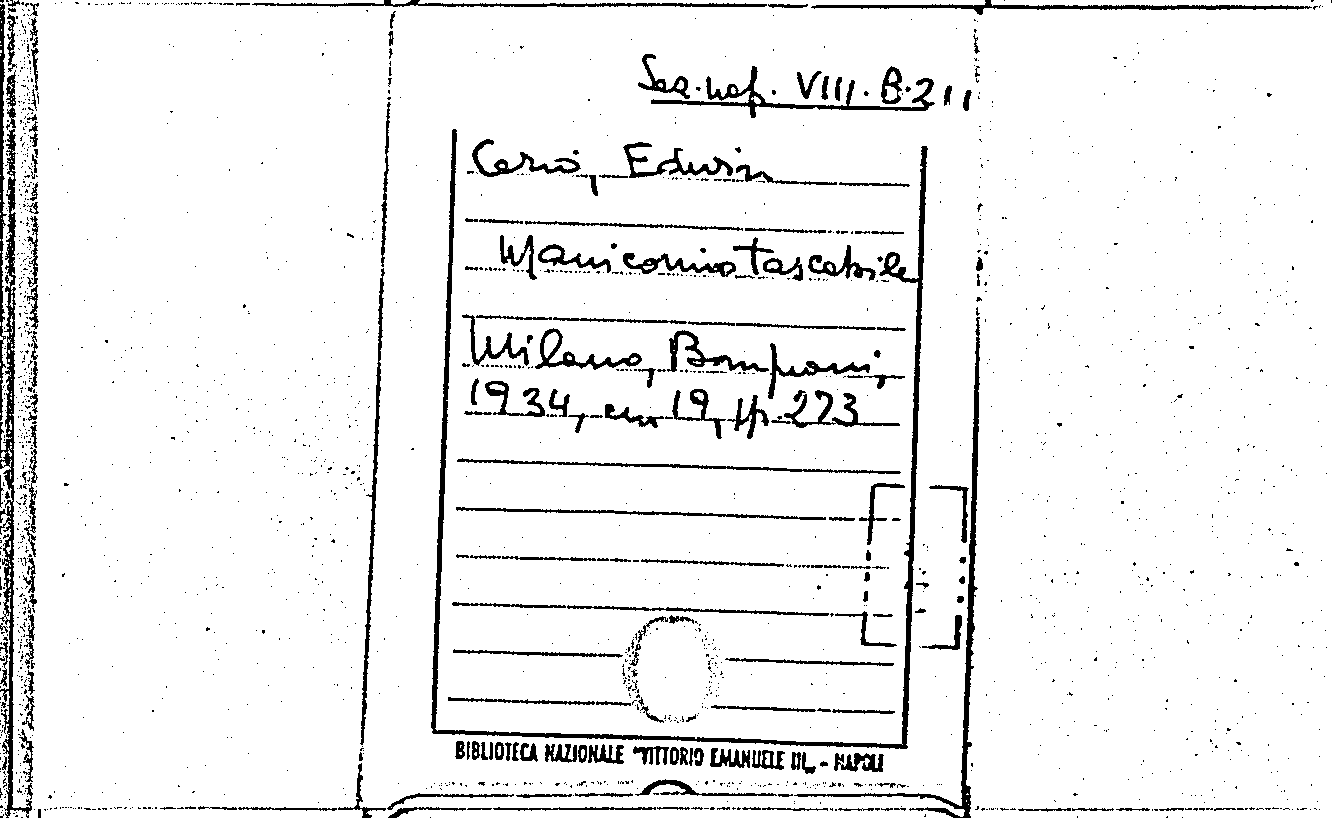 Sez. nap. VIII. B. 211
Cerio, Edwin
Manicomio tascabile
Milano, Bompiani,
1934, cm 19, pp. 273
BIBLIOTECA NAZIONALE "VITTORIO EMANUELE III„ - NAPOLI